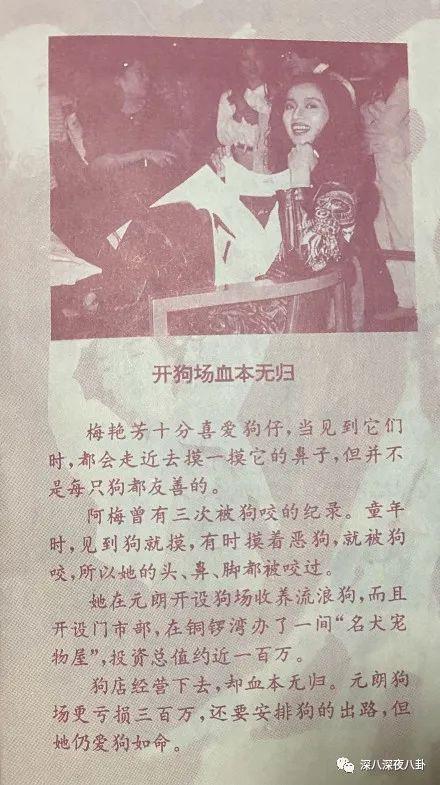 开狗场血本无归
梅艳芳十分喜爱狗仔，当见到它们
时，都会走近去摸一摸它的鼻子，但并不
是每只狗都友善的。
阿梅曾有三次被狗咬的纪录。童年
时，见到狗就摸，有时摸着恶狗，就被狗
咬，所以她的头、鼻、脚都被咬过。
她在元朗开设狗场收养流浪狗，而且
开设门市部，在铜锣湾办了一间“名犬宠
物屋”，投资总值约近一百万。
狗店经营下去，却血本无归。元朗狗
场更亏损三百万，还要安排狗的出路，但
她仍爱狗如命。
深八深夜八卦